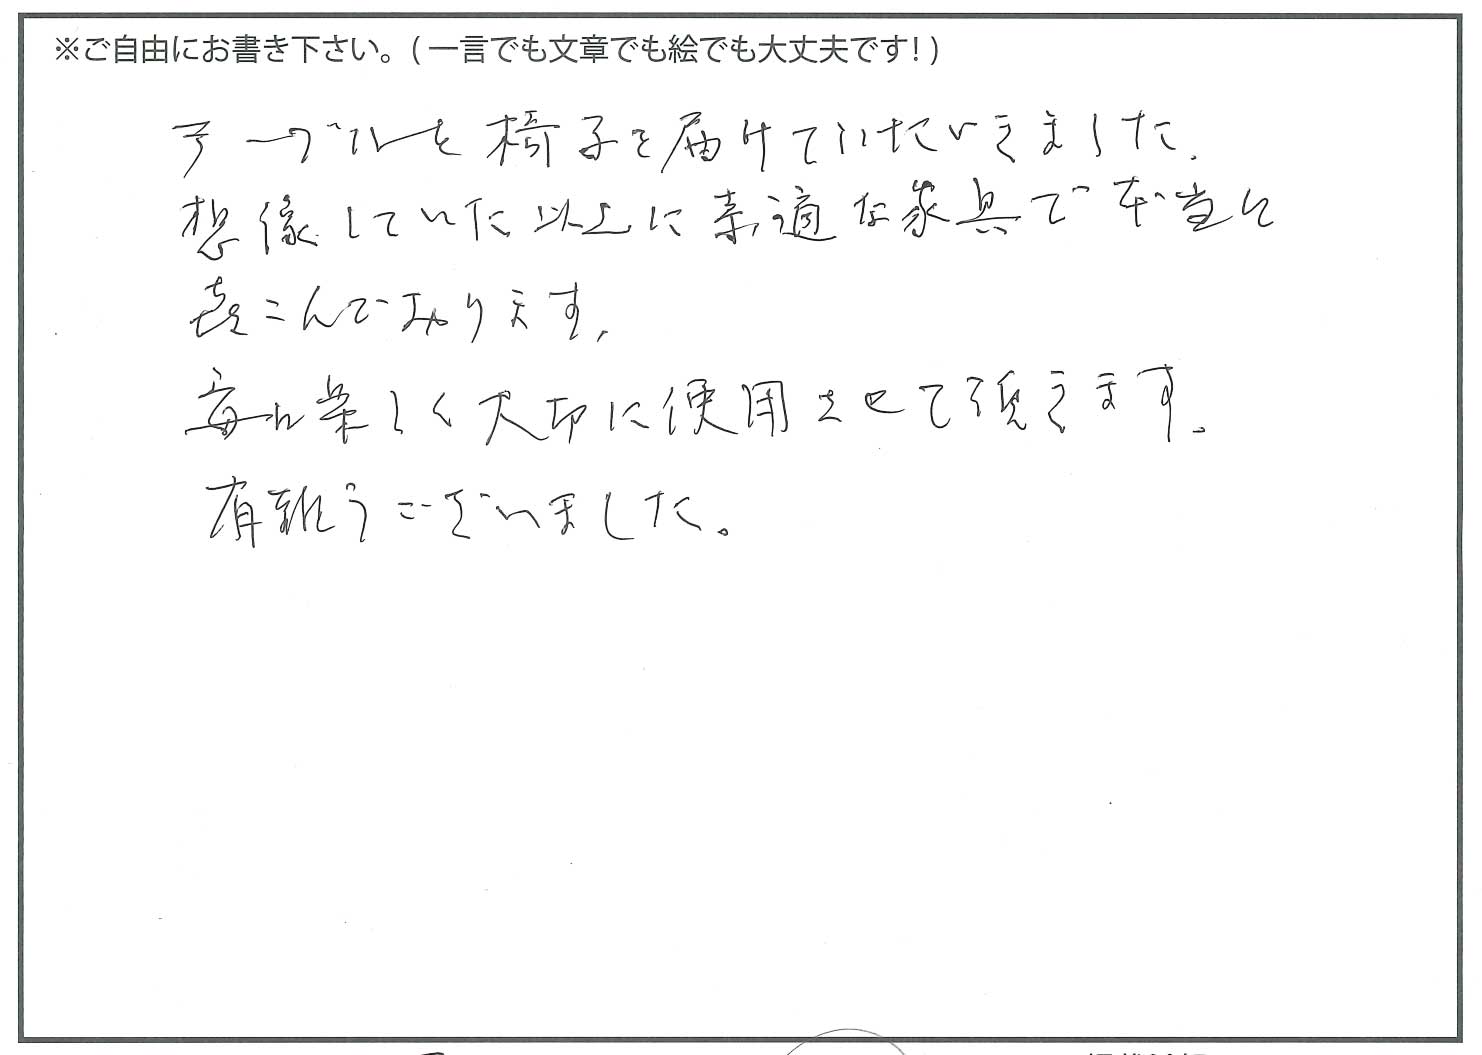 ※ご自由にお書き下さい。(一言でも文章でも絵でも大丈夫です!)
テーブルと椅子を届けていただいきました。
想像していた以上に素適な家具で本当に
喜こんでおります。
毎日楽しく大切に使用させて頂きます。
有難うございました。